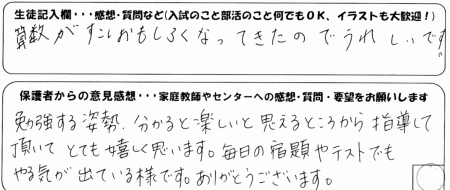 生徒記入欄・・・感想・質問など(入試のこと部活のこと何でもOK、イラストも大歓迎！)
算数がすこしおもしろくなってきたのでうれしいです。
保護者からの意見感想・・・家庭教師やセンターへの感想・質問・要望をお願いします
勉強する姿勢、分かると楽しいと思えるところから指導して
頂いてとても嬉しく思います。毎日の宿題やテストでも
やる気が出ている様です。ありがとうございます。